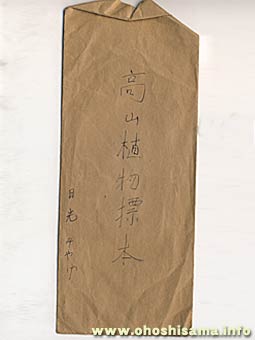 高山植物標本
日光みやげ
www.ohoshisama.info